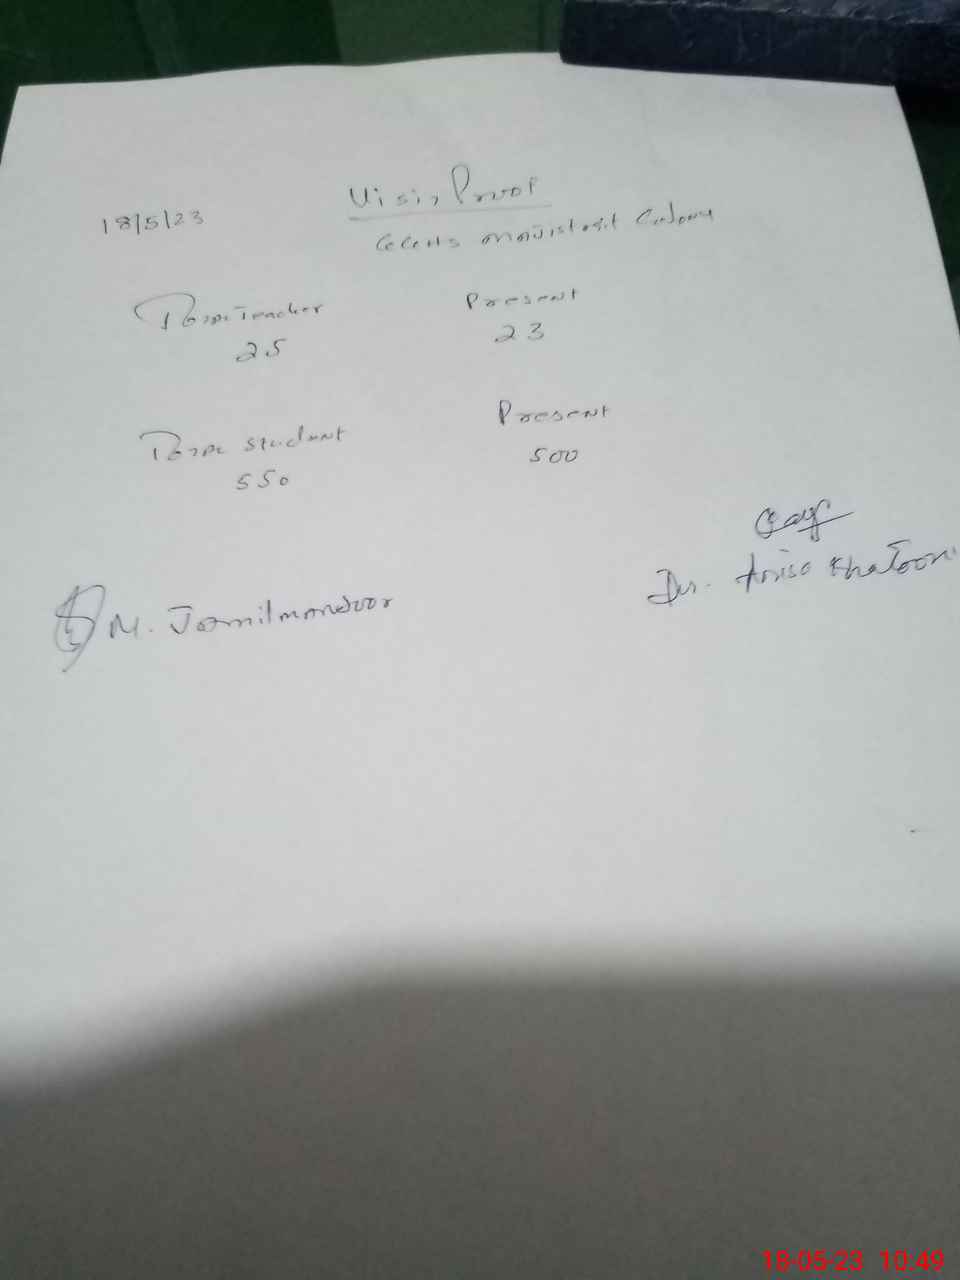 18/5/23
Visit Proof
Colony
Total Teacher Present
25 23
Total Student Present
550 500
M. Jamil mandoor
Dr. Anisa Khatoon
18-05-23 10:49